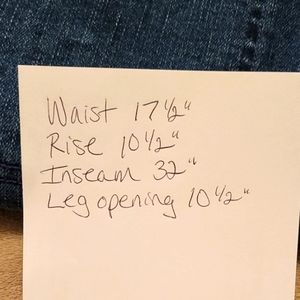 Waist 17½"
Rise 10½"
Inseam 32"
Leg opening 10½"